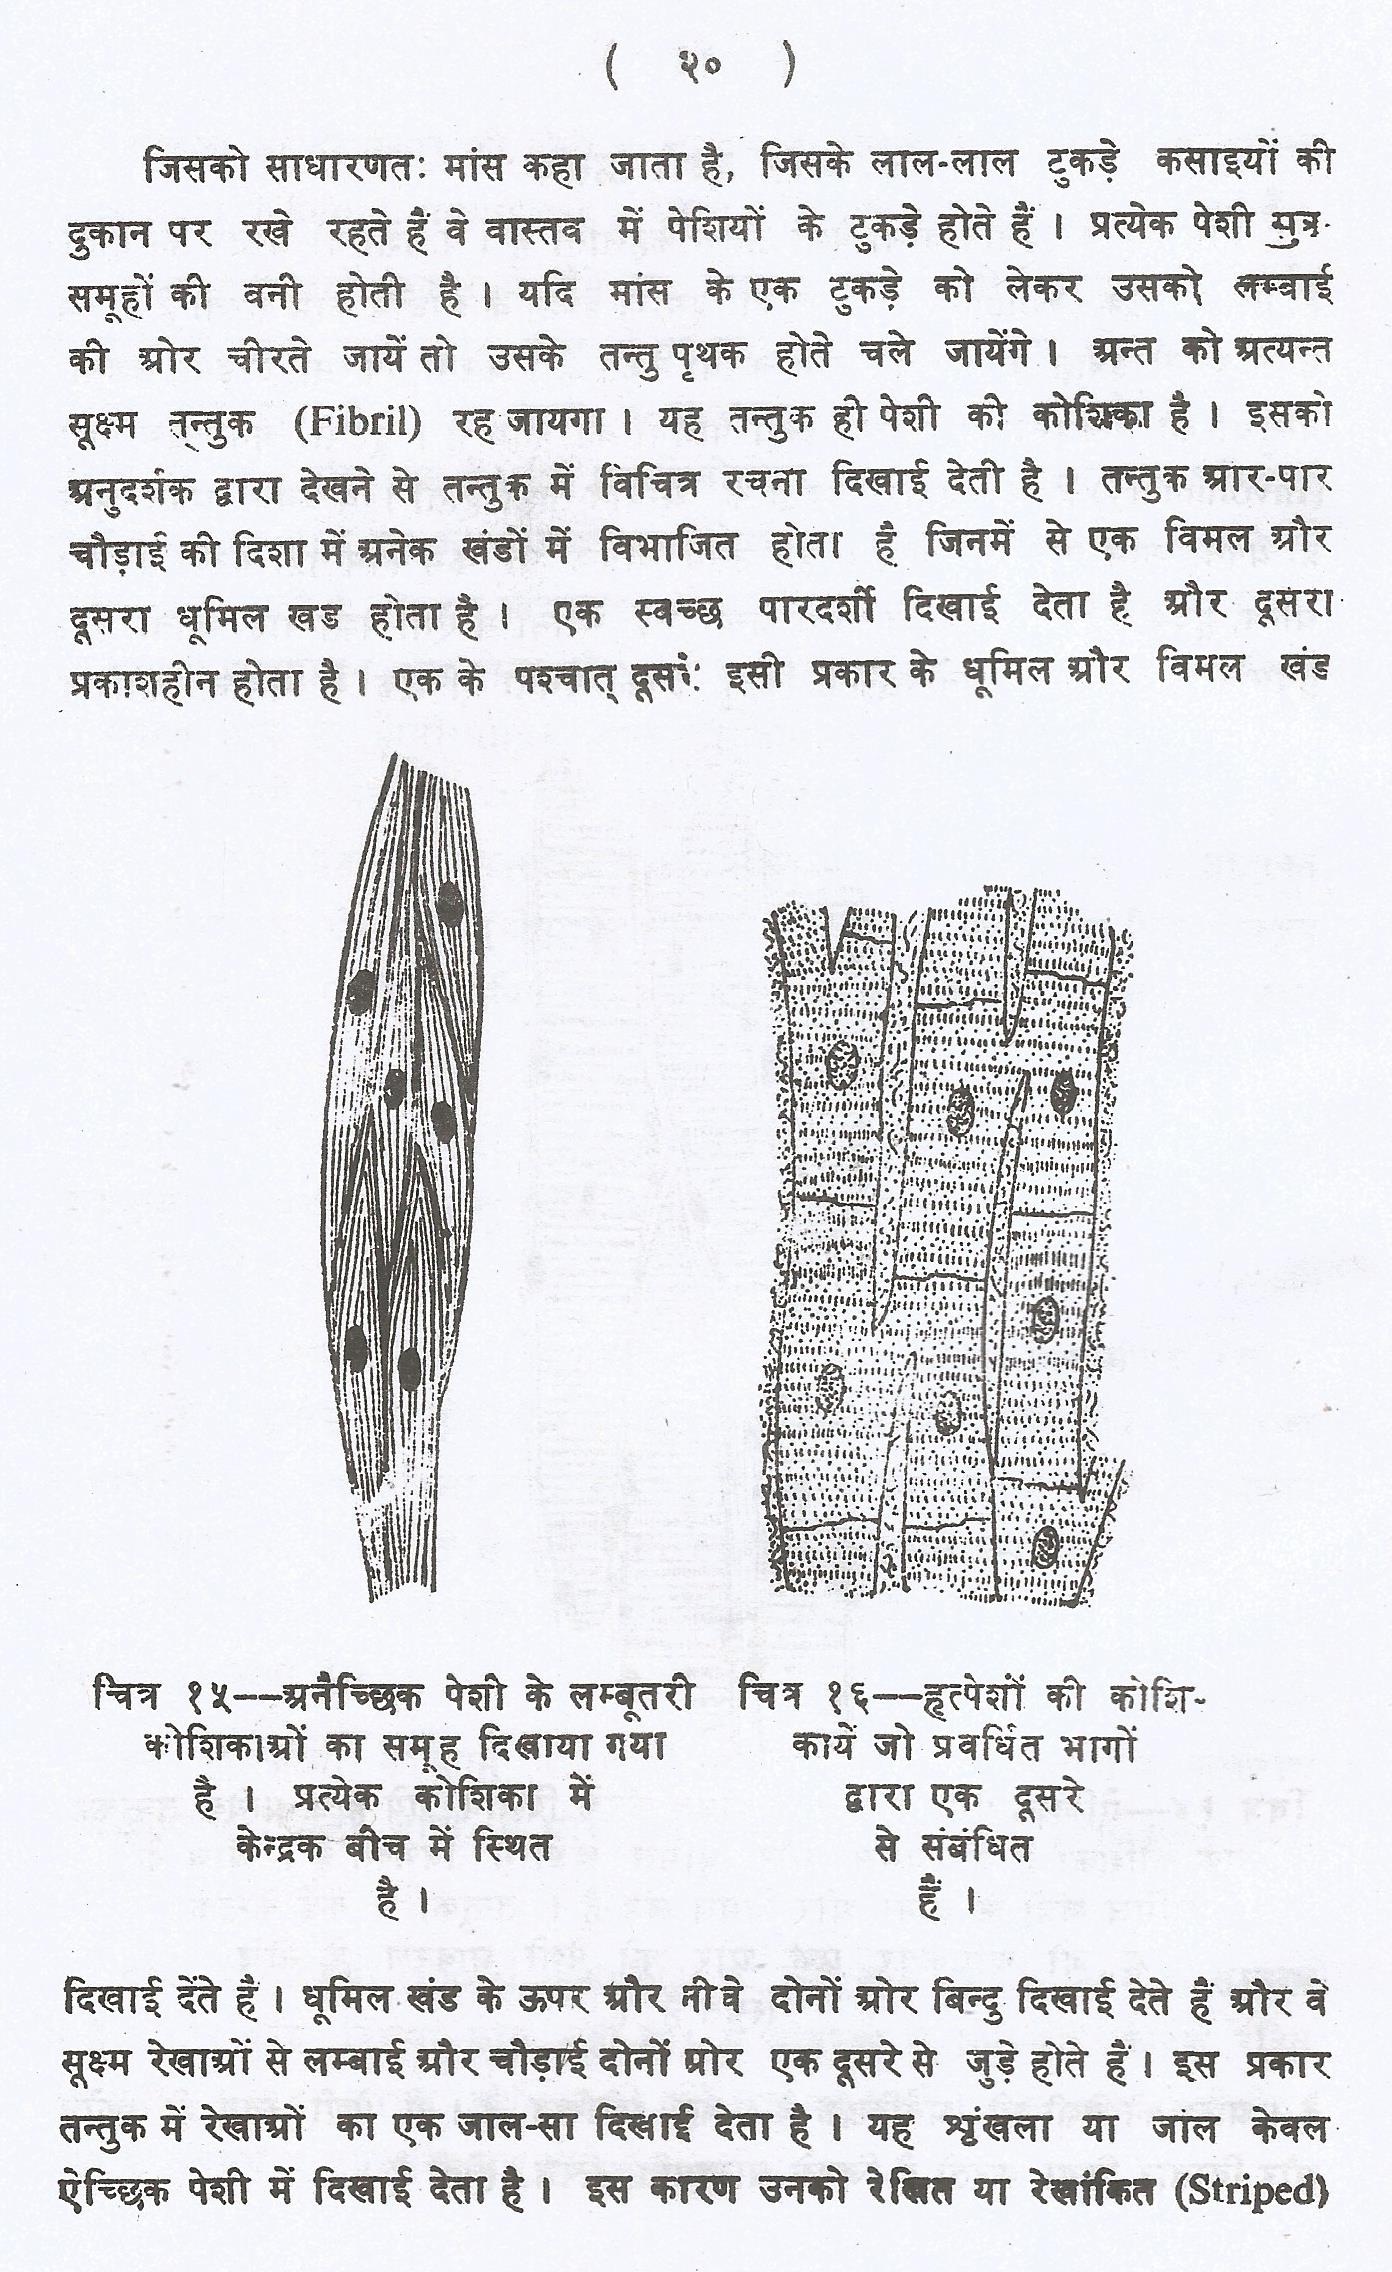 ( ५० )
जिसको साधारणतः मांस कहा जाता है, जिसके लाल-लाल टुकड़े कसाइयों की
दुकान पर रखे रहते हैं वे वास्तव में पेशियों के टुकड़े होते हैं । प्रत्येक पेशी सुत्र-
समूहों की वनी होती है । यदि मांस के एक टुकड़े को लेकर उसको लम्बाई
की ओर चीरते जायें तो उसके तन्तु पृथक होते चले जायेंगे । अन्त को अत्यन्त
सूक्ष्म तन्तुक (Fibril) रह जायगा । यह तन्तुक ही पेशी की कोशिका है । इसको
अनुदर्शक द्वारा देखने से तन्तुक में विचित्र रचना दिखाई देती है । तन्तुक आर-पार
चौड़ाई की दिशा में अनेक खंडों में विभाजित होता है जिनमें से एक विमल और
दूसरा धूमिल खड होता है । एक स्वच्छ पारदर्शी दिखाई देता है और दूसरा
प्रकाशहीन होता है । एक के पश्चात् इसी प्रकार के धूमिल और विमल खंड
चित्र १५—अनैच्छिक पेशी के लम्बूतरी
कोशिकाओं का समूह दिखाया गया
है । प्रत्येक कोशिका में
केन्द्रक बीच में स्थित
है ।
चित्र १६—हृत्पेशी की कोशि-
कायें जो प्रवर्धित भागों
द्वारा एक दूसरे
से संबंधित
हैं ।
दिखाई देंते हैं । धूमिल खंड के ऊपर और नीचे दोनों ओर बिन्दु दिखाई देते हैं और वे
सूक्ष्म रेखाओं से लम्बाई और चौड़ाई दोनों ओर एक दूसरे से जुड़े होते हैं । इस प्रकार
तन्तुक में रेखाओं का एक जाल-सा दिखाई देता है । यह शृंखला या जाल केवल
ऐच्छिक पेशी में दिखाई देता है । इस कारण उनको रेखित या रेखांकित (Striped)